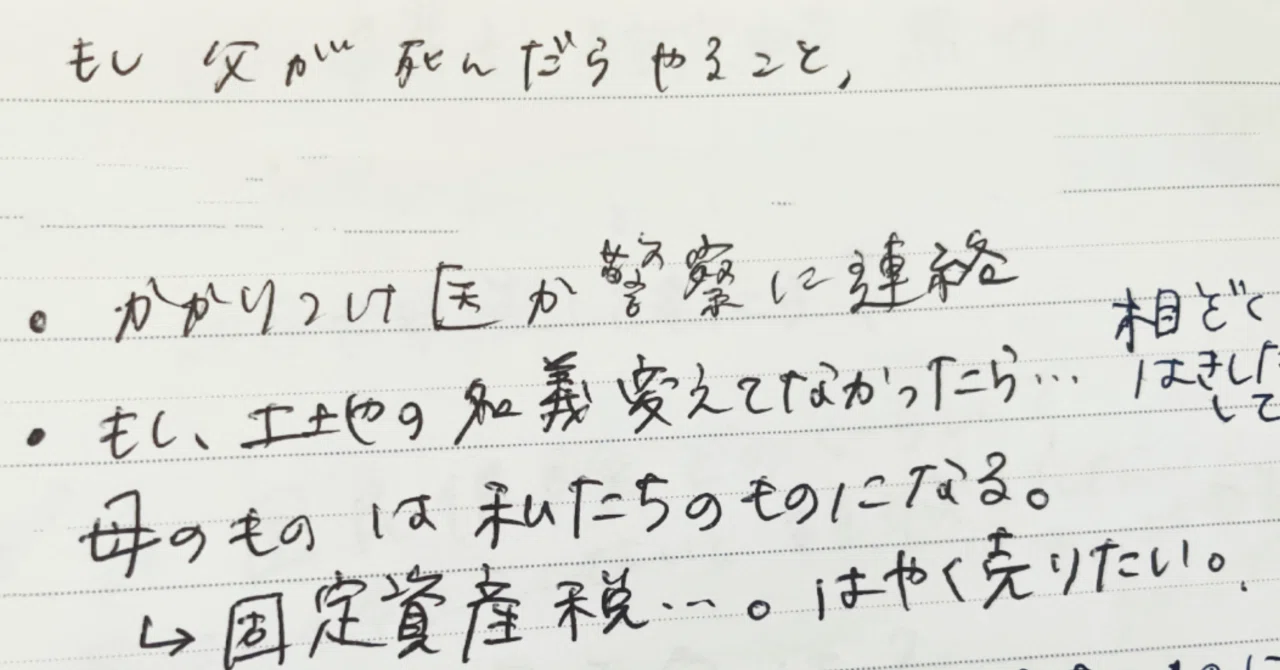 もし 父が 死んだら やること,
• かかりつけ医か警察に連絡
• もし、土地の名義変えてなかったら…
相ぞく
はきした
して
母のもの は 私たちのものになる。
↳ 固定資産税…。はやく売りたい。